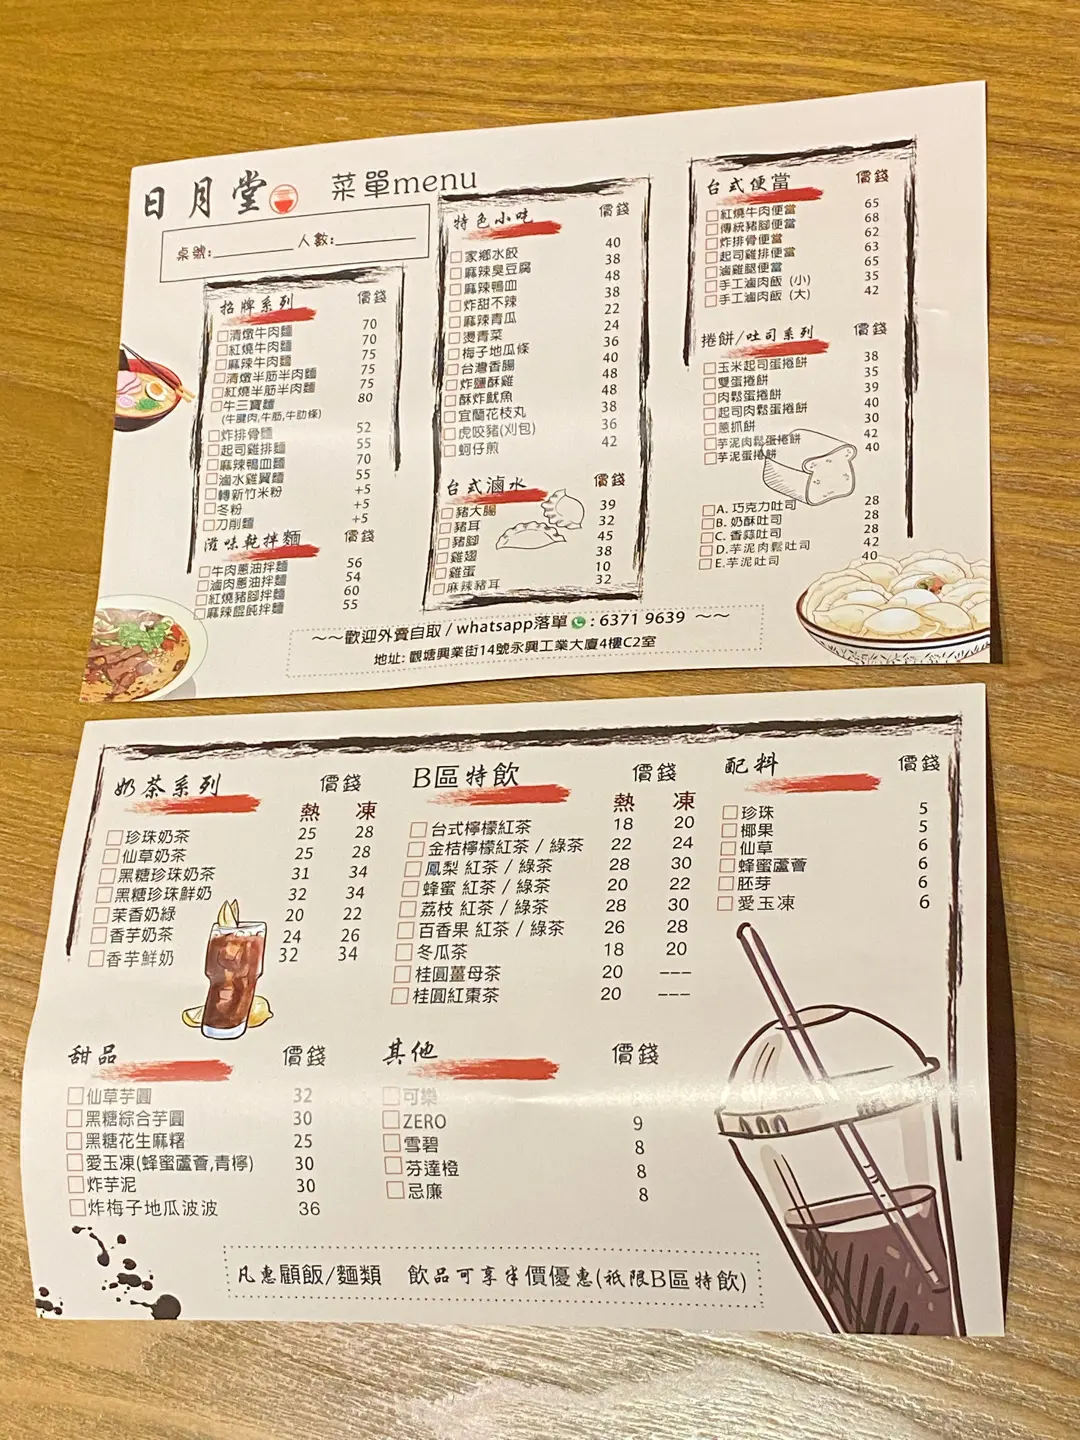 日月堂
菜單menu
桌號:________ 人數:________
招牌系列 價錢
清燉牛肉麵 70
紅燒牛肉麵 70
麻辣牛肉麵 75
清燉半筋半肉麵 75
紅燒半筋半肉麵 75
牛三寶麵 80
(牛腱肉,牛筋,牛肋條)
炸排骨麵 52
起司雞排麵 55
麻辣鴨血麵 70
滷水雞翼麵 55
轉新竹米粉 +5
冬粉 +5
刀削麵 +5
滋味乾拌麵 價錢
牛肉蔥油拌麵 56
滷肉蔥油拌麵 54
紅燒豬腳拌麵 60
麻辣餛飩拌麵 55
特色小吃 價錢
家鄉水餃 40
麻辣臭豆腐 38
麻辣鴨血 48
炸甜不辣 38
麻辣青瓜 22
燙青菜 24
梅子地瓜條 36
台灣香腸 40
炸鹽酥雞 48
酥炸魷魚 48
宜蘭花枝丸 38
虎咬豬(刈包) 36
蚵仔煎 42
台式滷水 價錢
豬大腸 39
豬耳 32
豬腳 45
雞翅 38
雞蛋 10
麻辣豬耳 32
台式便當 價錢
紅燒牛肉便當 65
傳統豬腳便當 68
炸排骨便當 62
起司雞排便當 63
滷雞腿便當 65
手工滷肉飯 (小) 35
手工滷肉飯 (大) 42
捲餅/吐司系列 價錢
玉米起司蛋捲餅 38
雙蛋捲餅 35
肉鬆蛋捲餅 39
起司肉鬆蛋捲餅 40
蔥抓餅 30
芋泥肉鬆蛋捲餅 42
芋泥蛋捲餅 40
A. 巧克力吐司 28
B. 奶酥吐司 28
C. 香蒜吐司 28
D.芋泥肉鬆吐司 42
E.芋泥吐司 40
～～歡迎外賣自取 / whatsapp落單 : 6371 9639 ～～
地址: 觀塘興業街14號永興工業大廈4樓C2室
奶茶系列 價錢
熱 凍
珍珠奶茶 25 28
仙草奶茶 25 28
黑糖珍珠奶茶 31 34
黑糖珍珠鮮奶 32 34
茉香奶綠 20 22
香芋奶茶 24 26
香芋鮮奶 32 34
B區特飲 價錢
熱 凍
台式檸檬紅茶 18 20
金桔檸檬紅茶 / 綠茶 22 24
鳳梨 紅茶 / 綠茶 28 30
蜂蜜 紅茶 / 綠茶 20 22
荔枝 紅茶 / 綠茶 28 30
百香果 紅茶 / 綠茶 26 28
冬瓜茶 18 20
桂圓薑母茶 20 ---
桂圓紅棗茶 20 ---
配料 價錢
珍珠 5
椰果 5
仙草 6
蜂蜜蘆薈 6
胚芽 6
愛玉凍 6
甜品 價錢
仙草芋圓 32
黑糖綜合芋圓 30
黑糖花生麻糬 25
愛玉凍(蜂蜜蘆薈,青檸) 30
炸芋泥 30
炸梅子地瓜波波 36
其他 價錢
可樂
ZERO 9
雪碧 8
芬達橙 8
忌廉 8
凡惠顧飯/麵類 飲品可享半價優惠(祇限B區特飲)